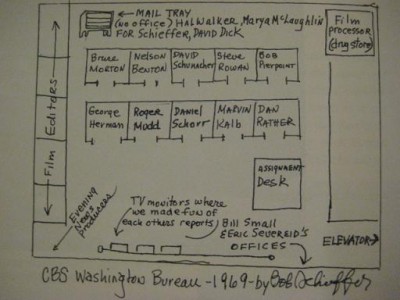 MAIL TRAY
(no office) HAL WALKER, Marya McLaughlin
FOR SCHIEFFER, DAVID DICK
Film
Processor
(drug store)
Bruce
MORTON
NELSON
BENTON
DAVID
Schumacher
Steve
ROWAN
BOB
Pierpoint
Film Editors
George
Herman
Roger
Mudd
Daniel
Schorr
MARVIN
Kalb
DAN
RATHER
ASSIGNMENT
DESK
EVENING
News
PRODUCERS
TV monitors where
we made fun of
each others reports
Bill Small
& ERIC SEVEREID'S
OFFICES
ELEVATOR
CBS Washington Bureau - 1969 - by Bob Schieffer